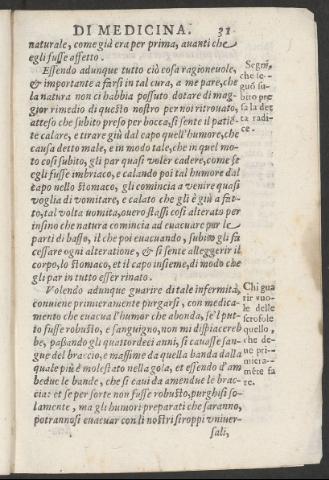 DI MEDICINA. 31
naturale, come già era per prima, auanti che
egli fusse affetto.
Essendo adunque tutto ciò cosa ragioneuole,
& importante a farsi in tal cura, a me pare, che
la natura non ci habbia possuto dotare di mag-
gior rimedio di questo nostro per noi ritrouato,
atteso che subito preso per bocca, si sente il patiē-
te calare, e tirare giù dal capo quell'humore, che
causa detto male, e in modo tale, che in quel mo-
to così subito, gli par quasi voler cadere, come se
egli fusse imbriaco, e calando poi tal humore dal
capo nello stomaco, gli comincia a venire quasi
voglia di vomitare, e calato che gli è giù a fat-
to, tal volta uomita, ouero stassi così alterato per
insino che natura comincia ad euacuare per le
parti di basso, il che poi euacuando, subito gli fà
cessare ogni alteratione, & si sente alleggerir il
corpo, lo stomaco, et il capo insieme, di modo che
gli par in tutto esser rinato.
Volendo adunque guarire di tale infermità,
conuiene primieramente purgarsi, con medica-
mento che euacua l'humor che abonda, se'l put-
to fusse robusto, e sanguigno, non mi dispiacereb
be, passando gli quattordeci anni, si cauasse san-
gue del braccio, e massime da quella banda dalla
quale più è molestato nella gola, et essendo d'am
bedue le bande, che si caui da amendue le brac-
cia: et se per sorte non fusse robusto, purghisi so-
lamente, ma gli humori preparati che saranno,
potrannosi euacuar con li nostri siroppi vniuer-
sali,
Segni,
che se-
guō su-
bito pre
sa la det
ta radi-
ce.
Chi gua
rir vuo-
le delle
scrofole
quello,
che de-
ue pri-
miera-
mēte fa
re.